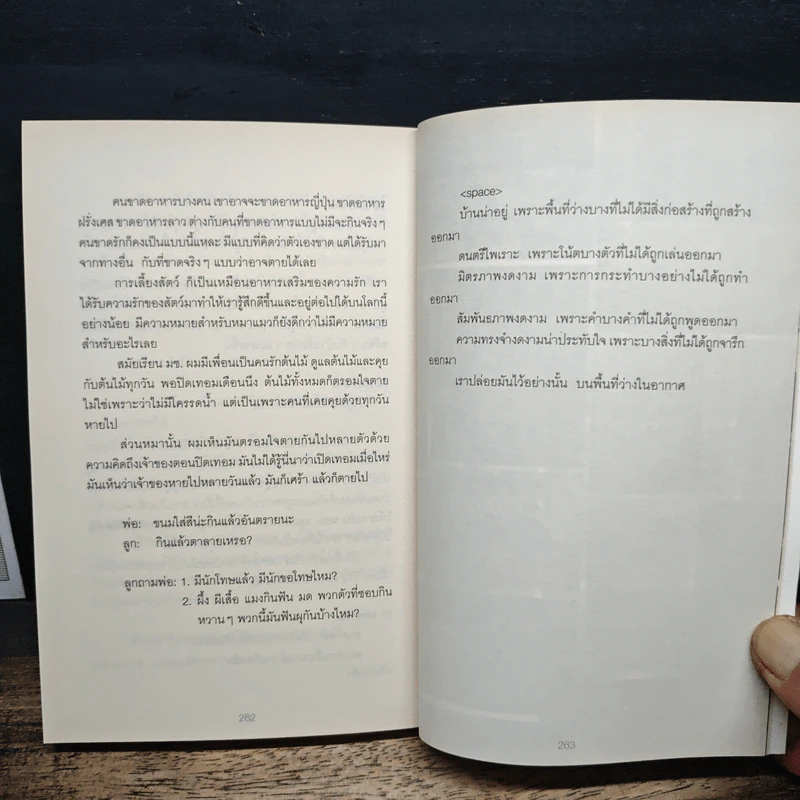 คนขาดอาหารบางคน เขาอาจจะขาดอาหารญี่ปุ่น ขาดอาหาร
ฝรั่งเศส ขาดอาหารลาว ต่างกับคนที่ขาดอาหารแบบไม่มีจะกินจริงๆ
คนขาดรักก็คงเป็นแบบนี้แหละ มีแบบที่คิดว่าตัวเองขาด แต่ได้รับมา
จากทางอื่น กับที่ขาดจริงๆ แบบว่าอาจตายได้เลย
การเลี้ยงสัตว์ ก็เป็นเหมือนอาหารเสริมของความรัก เรา
ได้รับความรักของสัตว์มาทำให้เรารู้สึกดีขึ้นและอยู่ต่อไปได้บนโลกนี้
อย่างน้อย มีความหมายสำหรับหมาแมวก็ยังดีกว่าไม่มีความหมาย
สำหรับอะไรเลย
สมัยเรียน มช. ผมมีเพื่อนเป็นคนรักต้นไม้ ดูแลต้นไม้และคุย
กับต้นไม้ทุกวัน พอปิดเทอมเดือนนึง ต้นไม้ทั้งหมดก็ตรอมใจตาย
ไม่ใช่เพราะว่าไม่มีใครรดน้ำ แต่เป็นเพราะคนที่เคยคุยด้วยทุกวัน
หายไป
ส่วนหมานั้น ผมเห็นมันตรอมใจตายกันไปหลายตัวด้วย
ความคิดถึงเจ้าของตอนปิดเทอม มันไม่ได้รู้นี่นาว่าเปิดเทอมเมื่อไหร่
มันเห็นว่าเจ้าของหายไปหลายวันแล้ว มันก็เศร้า แล้วก็ตายไป
พ่อ: ขนมใส่สีน่ะกินแล้วอันตรายนะ
ลูก: กินแล้วตาลายเหรอ?
ลูกถามพ่อ: 1. มีนักโทษแล้ว มีนักขอโทษไหม?
2. ผึ้ง ผีเสื้อ แมงกินฟัน มด พวกตัวที่ชอบกิน
หวานๆ พวกนี้มันฟันผุกันบ้างไหม?
262
<space>
บ้านน่าอยู่ เพราะพื้นที่ว่างบางที่ไม่ได้มีสิ่งก่อสร้างที่ถูกสร้าง
ออกมา
ดนตรีไพเราะ เพราะโน้ตบางตัวที่ไม่ได้ถูกเล่นออกมา
มิตรภาพงดงาม เพราะการกระทำบางอย่างไม่ได้ถูกทำ
ออกมา
สัมพันธภาพงดงาม เพราะคำบางคำที่ไม่ได้ถูกพูดออกมา
ความทรงจำงดงามน่าประทับใจ เพราะบางสิ่งที่ไม่ได้ถูกจารึก
ออกมา
เราปล่อยมันไว้อย่างนั้น บนพื้นที่ว่างในอากาศ
263